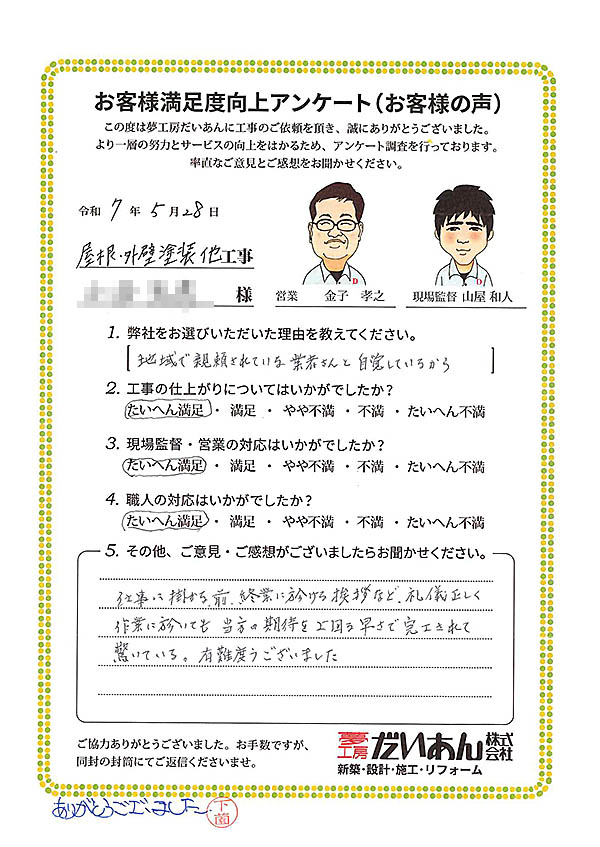 お客様満足度向上アンケート（お客様の声）
この度は夢工房だいあんに工事のご依頼を頂き、誠にありがとうございました。
より一層の努力とサービスの向上をはかるため、アンケート調査を行っております。
率直なご意見とご感想をお聞かせください。
令和 7 年 5 月 28 日
屋根・外壁塗装他工事
様
営業 金子 孝之
現場監督 山屋 和人
1. 弊社をお選びいただいた理由を教えてください。
地域で親頼されている業者さんと自覚しているから
2. 工事の仕上がりについてはいかがでしたか？
たいへん満足 ・ 満足 ・ やや不満 ・ 不満 ・ たいへん不満
3. 現場監督・営業の対応はいかがでしたか？
たいへん満足 ・ 満足 ・ やや不満 ・ 不満 ・ たいへん不満
4. 職人の対応はいかがでしたか？
たいへん満足 ・ 満足 ・ やや不満 ・ 不満 ・ たいへん不満
5. その他、ご意見・ご感想がございましたらお聞かせください。
仕事に掛かる前、終業に於ける挨拶など、礼儀正しく
作業に於いても当方の期待を上回る早さで完工されて
驚いている。有難度うございました
ご協力ありがとうございました。お手数ですが、
同封の封筒にてご返信くださいませ。
夢工房だいあん株式会社
新築・設計・施工・リフォーム
ありがとうございました 下薗